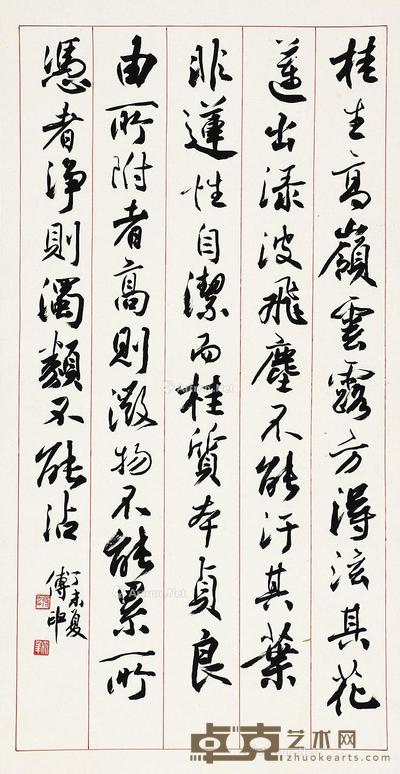 桂生高嶺雲露方得泫其花
蓮出淥波飛塵不能汙其葉
非蓮性自潔而桂質本貞良
由所附者高則微物不能累所
憑者淨則濁類不能沾
丁未夏
傅申
卓克艺术网
www.zhuokearts.com